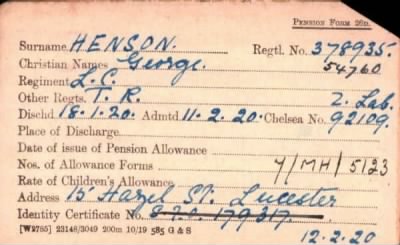 PENSION FORM 26n.
Surname HENSON. Regtl. No. 378935.
Christian Names George. 54760
Regiment L.C.
Other Regts. T.R. 2. Lab.
Dischd 18.1.20. Admtd 11.2.20. Chelsea No. 92109.
Place of Discharge
Date of issue of Pension Allowance
Nos. of Allowance Forms 7/MH/5123
Rate of Children's Allowance
Address 15 Hazel St. Leicester
Identity Certificate No. 179317.
[W2785] 23148/3049 200m 10/19 585 G & S 12.2.20